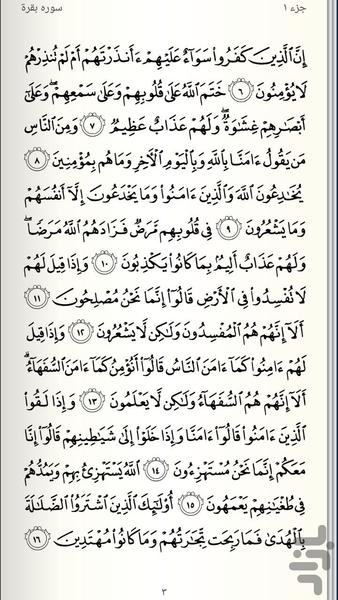 جزء ۱
سوره بقرة
إِنَّ ٱلَّذِينَ كَفَرُوا۟ سَوَآءٌ عَلَيْهِمْ ءَأَنذَرْتَهُمْ أَمْ لَمْ تُنذِرْهُمْ
لَا يُؤْمِنُونَ ۝٦ خَتَمَ ٱللَّهُ عَلَىٰ قُلُوبِهِمْ وَعَلَىٰ سَمْعِهِمْ ۖ وَعَلَىٰٓ
أَبْصَٰرِهِمْ غِشَٰوَةٌ ۖ وَلَهُمْ عَذَابٌ عَظِيمٌ ۝٧ وَمِنَ ٱلنَّاسِ
مَن يَقُولُ ءَامَنَّا بِٱللَّهِ وَبِٱلْيَوْمِ ٱلْءَاخِرِ وَمَا هُم بِمُؤْمِنِينَ ۝٨
يُخَٰدِعُونَ ٱللَّهَ وَٱلَّذِينَ ءَامَنُوا۟ وَمَا يَخْدَعُونَ إِلَّآ أَنفُسَهُمْ
وَمَا يَشْعُرُونَ ۝٩ فِى قُلُوبِهِم مَّرَضٌ فَزَادَهُمُ ٱللَّهُ مَرَضًا ۖ
وَلَهُمْ عَذَابٌ أَلِيمٌۢ بِمَا كَانُوا۟ يَكْذِبُونَ ۝١٠ وَإِذَا قِيلَ لَهُمْ
لَا تُفْسِدُوا۟ فِى ٱلْأَرْضِ قَالُوٓا۟ إِنَّمَا نَحْنُ مُصْلِحُونَ ۝١١
أَلَآ إِنَّهُمْ هُمُ ٱلْمُفْسِدُونَ وَلَٰكِن لَّا يَشْعُرُونَ ۝١٢ وَإِذَا قِيلَ
لَهُمْ ءَامِنُوا۟ كَمَآ ءَامَنَ ٱلنَّاسُ قَالُوٓا۟ أَنُؤْمِنُ كَمَآ ءَامَنَ ٱلسُّفَهَآءُ ۗ
أَلَآ إِنَّهُمْ هُمُ ٱلسُّفَهَآءُ وَلَٰكِن لَّا يَعْلَمُونَ ۝١٣ وَإِذَا لَقُوا۟
ٱلَّذِينَ ءَامَنُوا۟ قَالُوٓا۟ ءَامَنَّا وَإِذَا خَلَوْا۟ إِلَىٰ شَيَٰطِينِهِمْ قَالُوٓا۟ إِنَّا
مَعَكُمْ إِنَّمَا نَحْنُ مُسْتَهْزِءُونَ ۝١٤ ٱللَّهُ يَسْتَهْزِئُ بِهِمْ وَيَمُدُّهُمْ
فِى طُغْيَٰنِهِمْ يَعْمَهُونَ ۝١٥ أُو۟لَٰٓئِكَ ٱلَّذِينَ ٱشْتَرَوُا۟ ٱلضَّلَٰلَةَ
بِٱلْهُدَىٰ فَمَا رَبِحَت تِّجَٰرَتُهُمْ وَمَا كَانُوا۟ مُهْتَدِينَ ۝١٦
۳
بازار